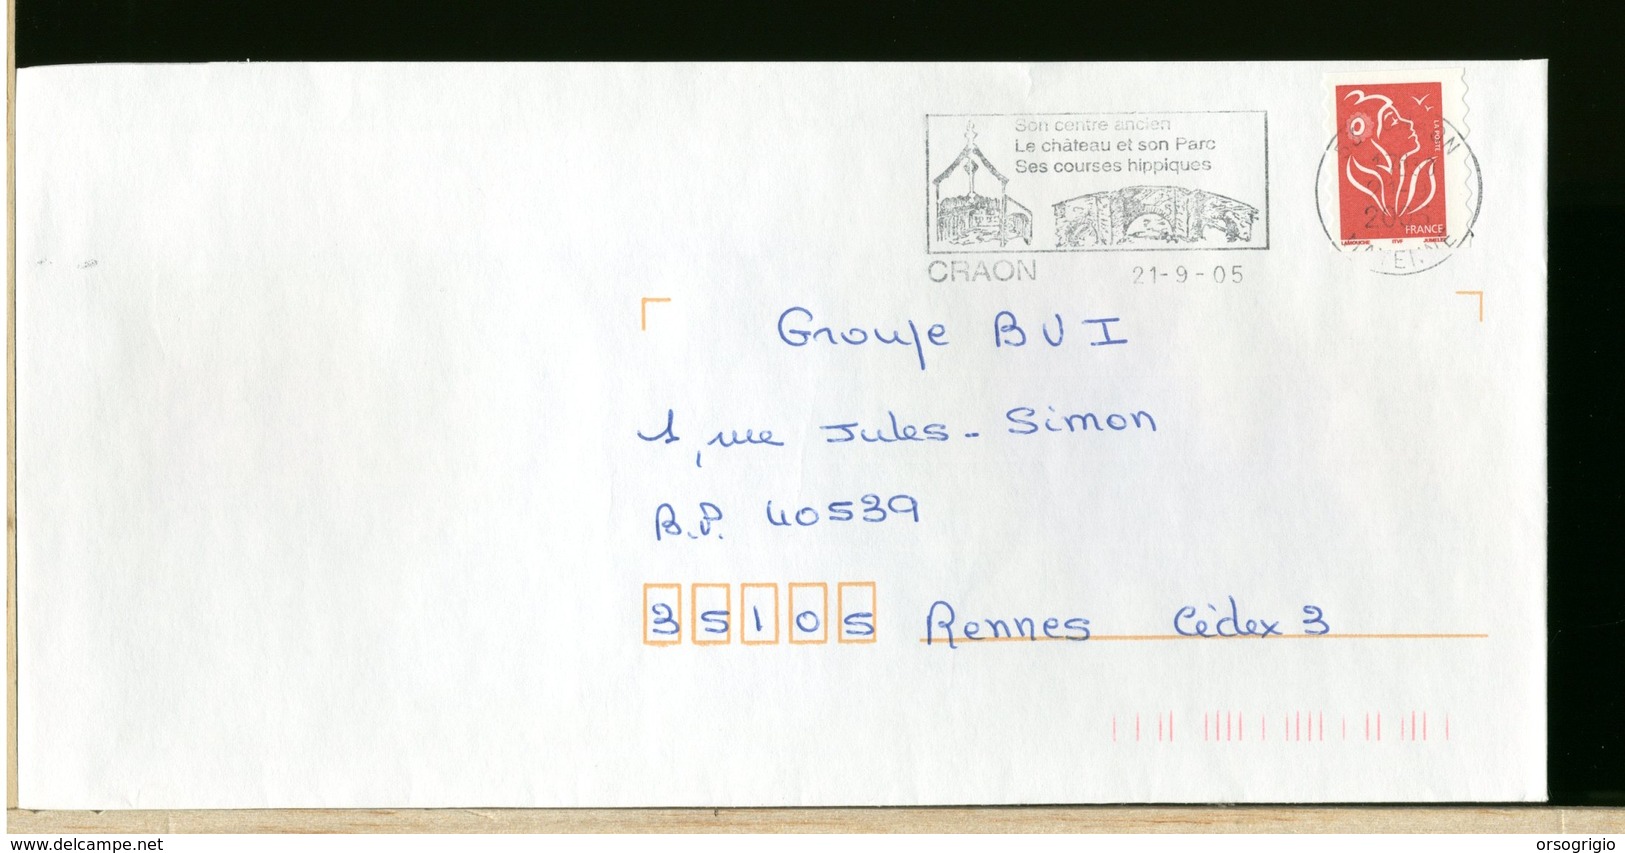 Son centre ancien
Le château et son Parc
Ses courses hippiques
CRAON 21-9-05
LA POSTE
FRANCE
LAMOUCHE ITVF JUMELET
2005
MAYENNE
Groupe BVI
1, rue Jules-Simon
B.P. 40539
35105 Rennes Cédex 3
delcampe.net
orsogrigio